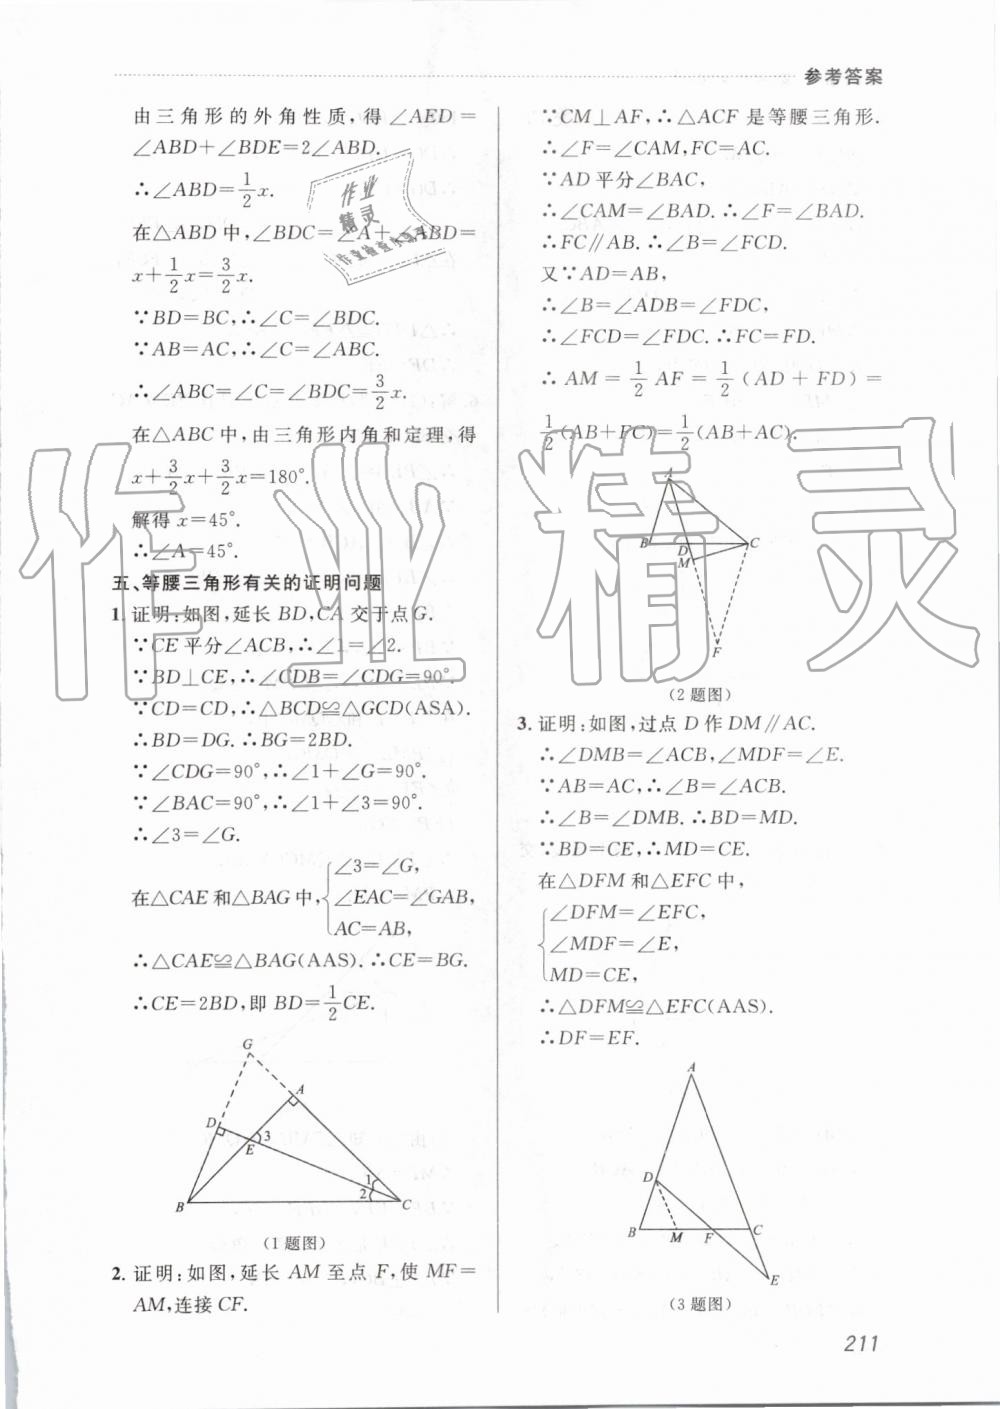 参考答案
由三角形的外角性质,得∠AED=
∠ABD+∠BDE=2∠ABD.
∴∠ABD=1/2x.
在△ABD中,∠BDC=∠A+∠ABD=
x+1/2x=3/2x.
∵BD=BC,∴∠C=∠BDC.
∵AB=AC,∴∠C=∠ABC.
∴∠ABC=∠C=∠BDC=3/2x.
在△ABC中,由三角形内角和定理,得
x+3/2x+3/2x=180°.
解得x=45°.
∴∠A=45°.
五、等腰三角形有关的证明问题
1. 证明:如图,延长BD,CA交于点G.
∵CE平分∠ACB,∴∠1=∠2.
∵BD⊥CE,∴∠CDB=∠CDG=90°.
∵CD=CD,∴△BCD≌△GCD(ASA).
∴BD=DG.∴BG=2BD.
∵∠CDG=90°,∴∠1+∠G=90°.
∵∠BAC=90°,∴∠1+∠3=90°.
∴∠3=∠G.
在△CAE和△BAG中,{∠3=∠G,
∠EAC=∠GAB,
AC=AB,
∴△CAE≌△BAG(AAS).∴CE=BG.
∴CE=2BD,即BD=1/2CE.
G
A
D
E
3
1
2
B
C
(1题图)
2. 证明:如图,延长AM至点F,使MF=
AM,连接CF.
∵CM⊥AF,∴△ACF是等腰三角形.
∴∠F=∠CAM,FC=AC.
∵AD平分∠BAC,
∴∠CAM=∠BAD.∴∠F=∠BAD.
∴FC∥AB.∴∠B=∠FCD.
又∵AD=AB,
∴∠B=∠ADB=∠FDC,
∴∠FCD=∠FDC.∴FC=FD.
∴AM=1/2AF=1/2(AD+FD)=
1/2(AB+FC)=1/2(AB+AC).
A
B
D
C
M
F
(2题图)
3. 证明:如图,过点D作DM∥AC.
∴∠DMB=∠ACB,∠MDF=∠E.
∵AB=AC,∴∠B=∠ACB.
∴∠B=∠DMB.∴BD=MD.
∵BD=CE,∴MD=CE.
在△DFM和△EFC中,
{∠DFM=∠EFC,
∠MDF=∠E,
MD=CE,
∴△DFM≌△EFC(AAS).
∴DF=EF.
A
D
B
M
F
C
E
(3题图)
211
作业
精灵
作业精灵